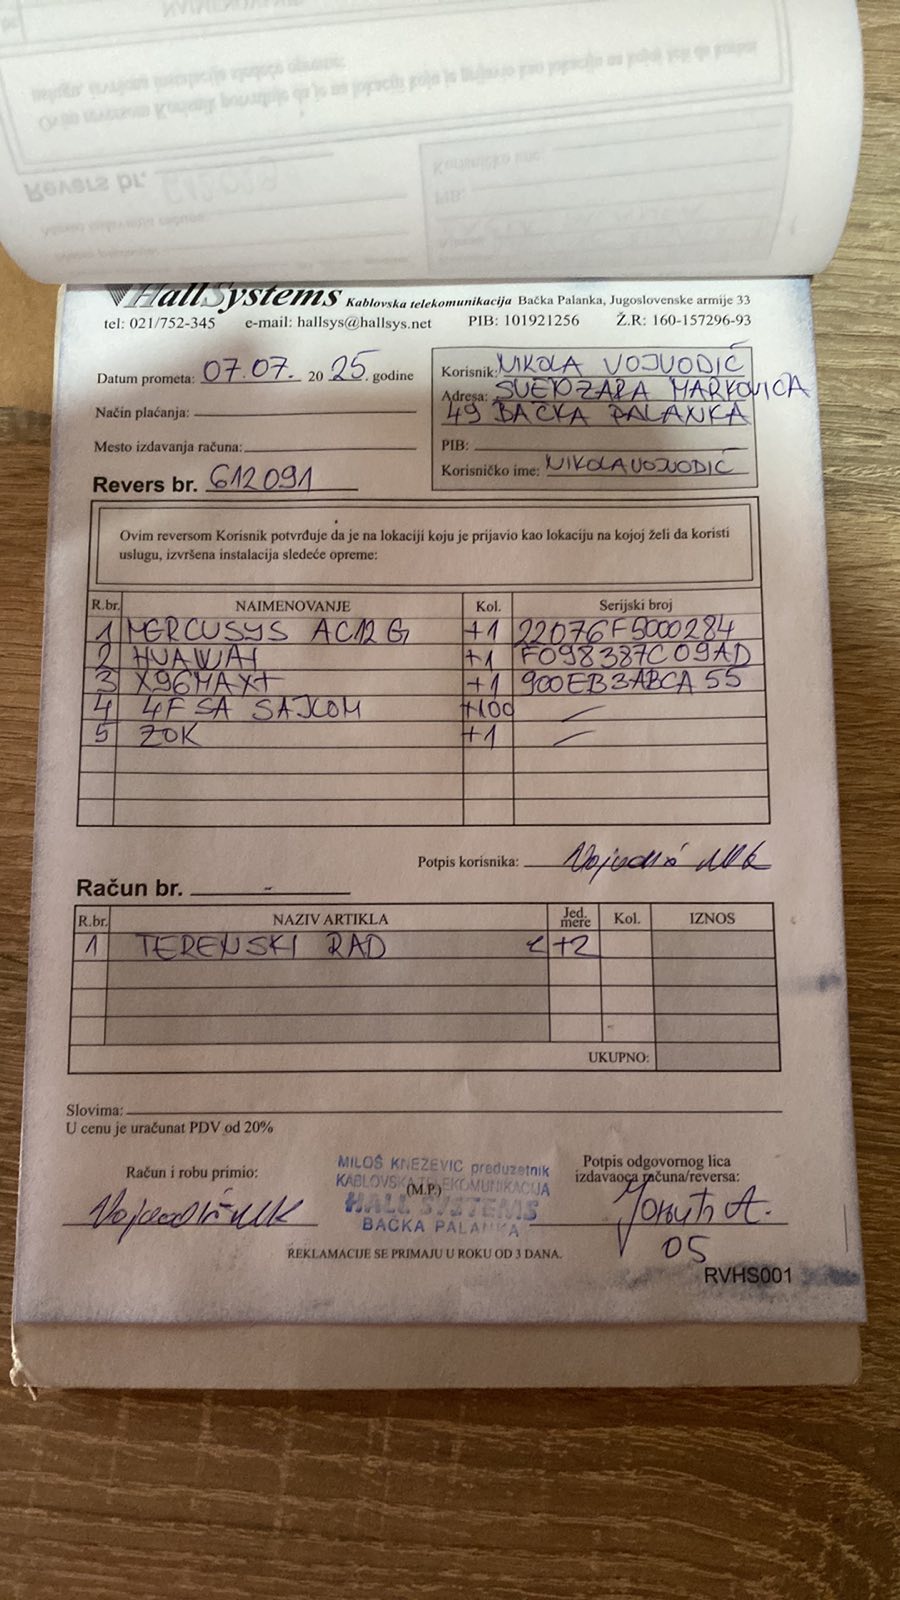 HallSystems Kablovska telekomunikacija Bačka Palanka, Jugoslovenske armije 33
tel: 021/752-345 e-mail: hallsys@hallsys.net PIB: 101921256 Ž.R: 160-157296-93
Datum prometa: 07.07. 20 25. godine
Način plaćanja:
Mesto izdavanja računa:
Revers br. 612091
Korisnik: NIKOLA VOJVODIĆ
Adresa: SVETOZARA MARKOVIĆA
49 BAČKA PALANKA
PIB:
Korisničko ime: NIKOLAVOJVODIĆ
Ovim reversom Korisnik potvrđuje da je na lokaciji koju je prijavio kao lokaciju na kojoj želi da koristi
uslugu, izvršena instalacija sledeće opreme:
R.br. NAIMENOVANJE Kol. Serijski broj
1 MERCUSYS AC12 G +1 22076F5000284
2 HUAWAI +1 F098387C09AD
3 X96MAX+ +1 900EB3ABCA55
4 4F SA SAJLOM +100 –
5 ZOK +1 –
Potpis korisnika:
Račun br. -
R.br. NAZIV ARTIKLA Jed. mere Kol. IZNOS
1 TERENSKI RAD +2
UKUPNO:
Slovima:
U cenu je uračunat PDV od 20%
Račun i robu primio:
MILOŠ KNEZEVIC preduzetnik
KABLOVSKA TELEKOMUNIKACIJA
(M.P.)
HALL SYSTEMS
BAČKA PALANKA
Potpis odgovornog lica
izdavaoca računa/reversa:
05
REKLAMACIJE SE PRIMAJU U ROKU OD 3 DANA.
RVHS001